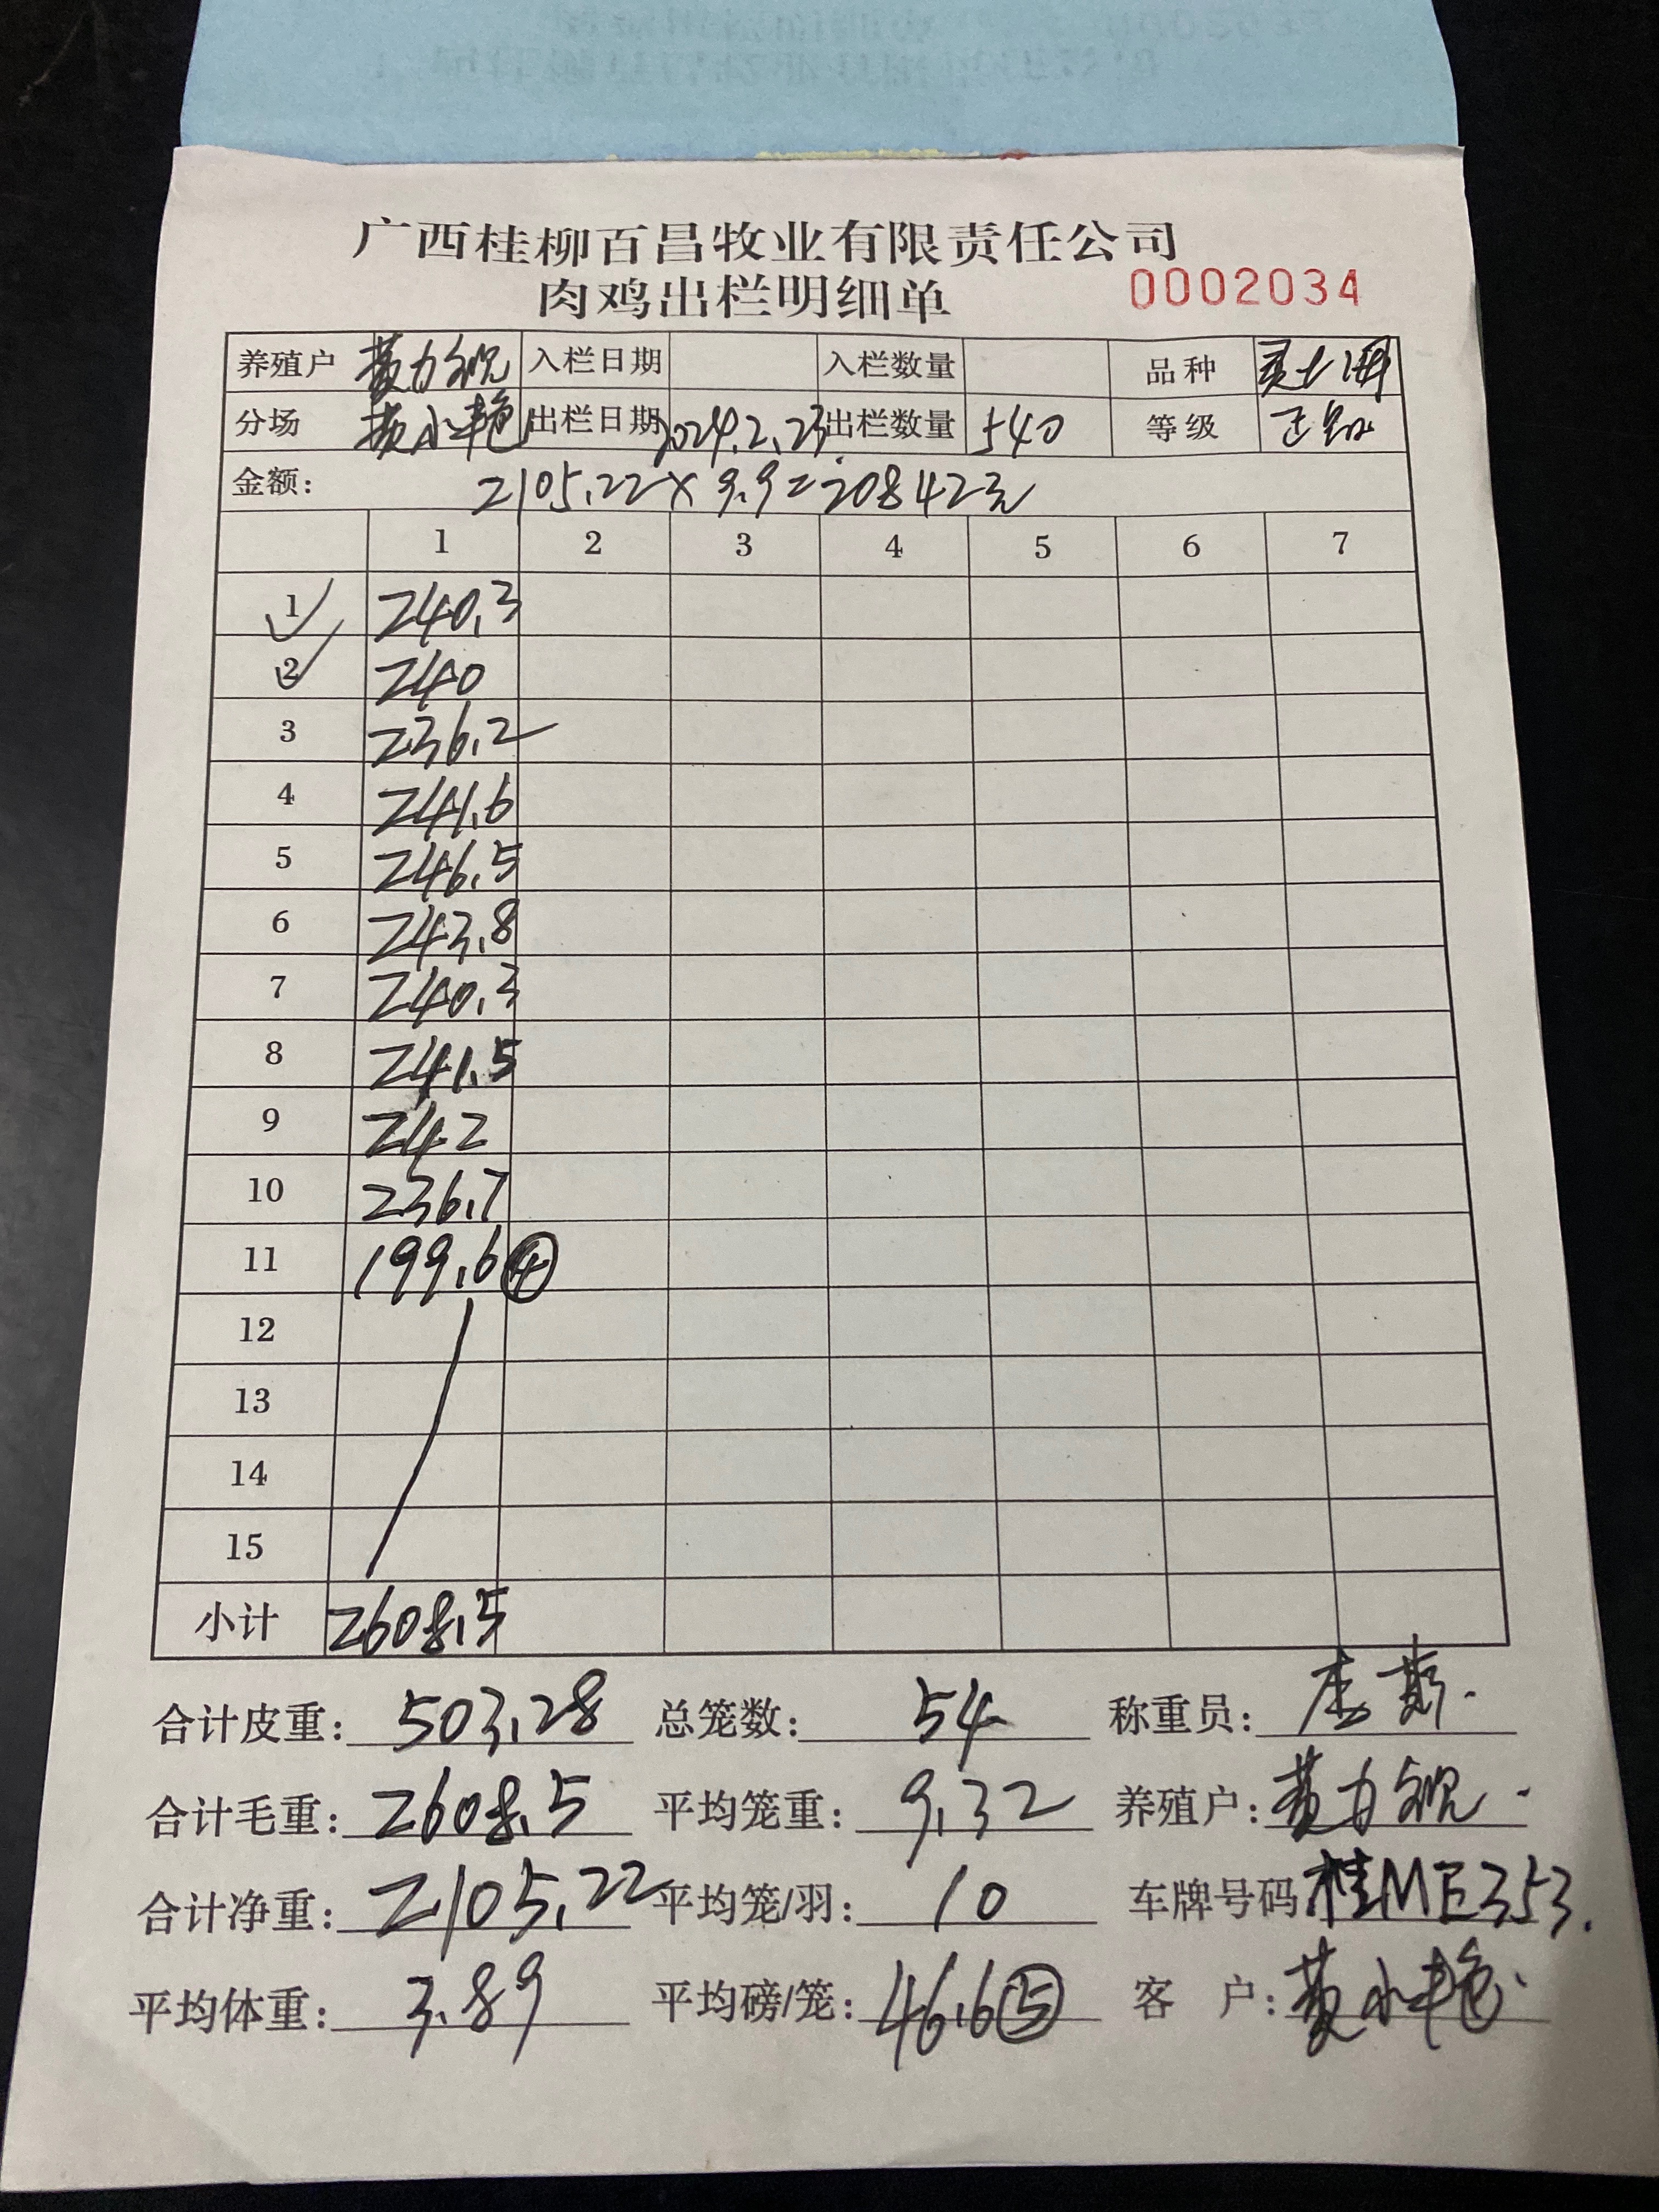 广西桂柳百昌牧业有限责任公司
肉鸡出栏明细单 0002034
养殖户 黄力 入栏日期 入栏数量 品种
分场 黄小艳 出栏日期 2024.2.23 出栏数量 540 等级 正品
金额: 2105.22×9.9=20842元
1 2 3 4 5 6 7
1 240.3
2 240
3 236.2
4 241.6
5 246.5
6 243.8
7 240.3
8 241.5
9 242
10 236.7
11 199.6 ④
12
13
14
15
小计 2608.5
合计皮重: 503.28 总笼数: 54 称重员:
合计毛重: 2608.5 平均笼重: 9.32 养殖户: 黄力
合计净重: 2105.22 平均笼/羽: 10 车牌号码 桂ME353.
平均体重: 3.89 平均磅/笼: 46.6⑤ 客 户: 黄小艳